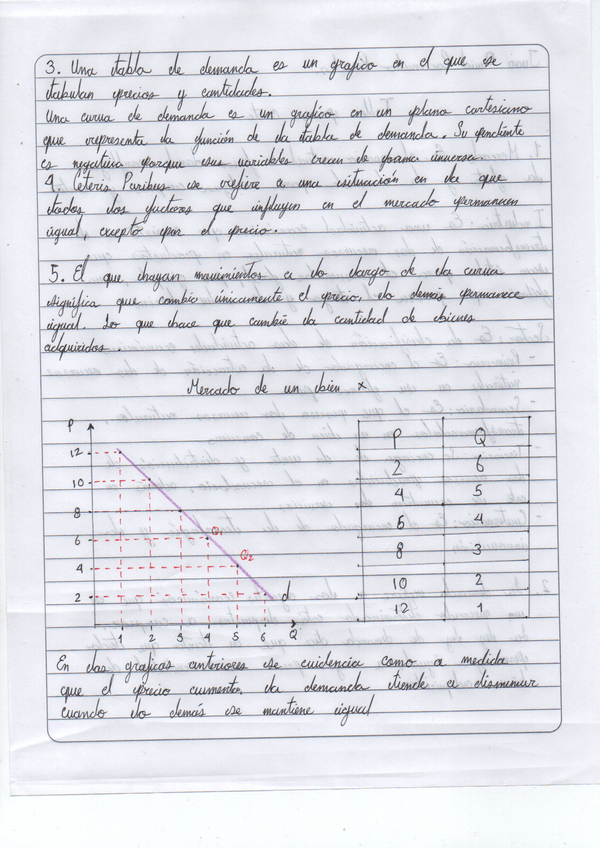 3. Una tabla de demanda es un grafico en el que se
tabulan precios y cantidades.
Una curva de demanda es un grafico en un plano cartesiano
que representa la función de la tabla de demanda. Su pendiente
es negativa porque sus variables crecen de forma inversa.
4. Ceteris Paribus se refiere a una situación en la que
todos los factores que influyen en el mercado permanecen
igual, excepto por el precio.
5. El que hayan movimientos a lo largo de la curva
significa que cambio únicamente el precio, lo demás permanece
igual. Lo que hace que cambie la cantidad de bienes
adquiridos.
Mercado de un bien x
P
12
10
8
6
4
2
Q1
Q2
d
1 2 3 4 5 6 Q
P Q
2 6
4 5
6 4
8 3
10 2
12 1
En las graficas anteriores se evidencia como a medida
que el precio aumenta, la demanda tiende a disminuir
cuando lo demás se mantiene igual